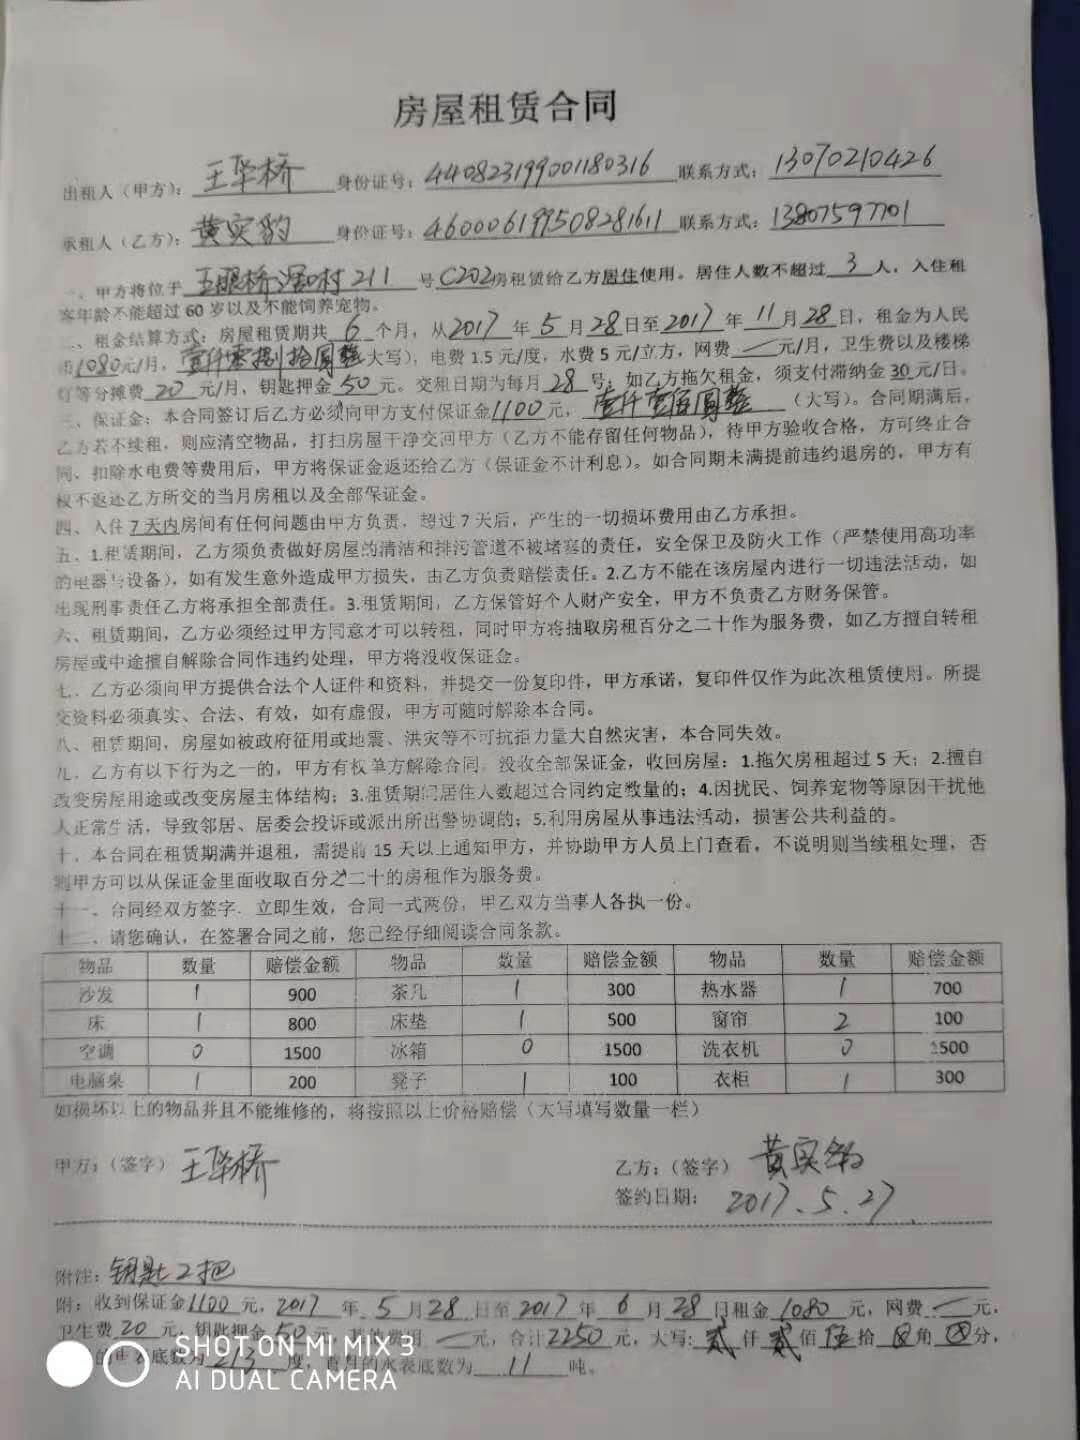 房屋租赁合同
出租人（甲方）：王华桥 身份证号：440823199001180316 联系方式：13070210426
承租人（乙方）：黄实豹 身份证号：460006199508281611 联系方式：13807597701
一、甲方将位于 五眼桥滘口村211 号C202房租赁给乙方居住使用。居住人数不超过 3 人，入住租
客年龄不能超过 60 岁以及不能饲养宠物。
二、租金结算方式：房屋租赁期共 6 个月，从2017 年 5 月28日至2017 年 11 月28 日，租金为人民
币1080元/月，壹仟零捌拾圆整大写），电费 1.5 元/度，水费 5 元/立方，网费 一 元/月，卫生费以及楼梯
灯等分摊费 20 元/月，钥匙押金 50 元。交租日期为每月 28 号，如乙方拖欠租金，须支付滞纳金 30 元/日。
三、保证金：本合同签订后乙方必须向甲方支付保证金1100 元，壹仟壹佰圆整 （大写）。合同期满后，
乙方若不续租，则应清空物品，打扫房屋干净交回甲方（乙方不能存留任何物品），待甲方验收合格，方可终止合
同、扣除水电费等费用后，甲方将保证金返还给乙方（保证金不计利息）。如合同期未满提前违约退房的，甲方有
权不返还乙方所交的当月房租以及全部保证金。
四、入住 7 天内房间有任何问题由甲方负责，超过 7 天后，产生的一切损坏费用由乙方承担。
五、1.租赁期间，乙方须负责做好房屋的清洁和排污管道不被堵塞的责任，安全保卫及防火工作（严禁使用高功率
的电器与设备），如有发生意外造成甲方损失，由乙方负责赔偿责任。2.乙方不能在该房屋内进行一切违法活动，如
出现刑事责任乙方将承担全部责任。3.租赁期间，乙方保管好个人财产安全，甲方不负责乙方财务保管。
六、租赁期间，乙方必须经过甲方同意才可以转租，同时甲方将抽取房租百分之二十作为服务费，如乙方擅自转租
房屋或中途擅自解除合同作违约处理，甲方将没收保证金。
七、乙方必须向甲方提供合法个人证件和资料，并提交一份复印件，甲方承诺，复印件仅作为此次租赁使用。所提
交资料必须真实、合法、有效，如有虚假，甲方可随时解除本合同。
八、租赁期间，房屋如被政府征用或地震、洪灾等不可抗拒力量大自然灾害，本合同失效。
九、乙方有以下行为之一的，甲方有权单方解除合同，没收全部保证金，收回房屋：1.拖欠房租超过 5 天；2.擅自
改变房屋用途或改变房屋主体结构；3.租赁期间居住人数超过合同约定数量的；4.因扰民、饲养宠物等原因干扰他
人正常生活，导致邻居、居委会投诉或派出所出警协调的；5.利用房屋从事违法活动，损害公共利益的。
十、本合同在租赁期满并退租，需提前 15 天以上通知甲方，并协助甲方人员上门查看，不说明则当续租处理，否
则甲方可以从保证金里面收取百分之二十的房租作为服务费。
十一、合同经双方签字，立即生效，合同一式两份，甲乙双方当事人各执一份。
十二、请您确认，在签署合同之前，您已经仔细阅读合同条款。
物品 数量 赔偿金额 物品 数量 赔偿金额 物品 数量 赔偿金额
沙发 1 900 茶几 1 300 热水器 1 700
床 1 800 床垫 1 500 窗帘 2 100
空调 0 1500 冰箱 0 1500 洗衣机 0 1500
电脑桌 1 200 凳子 1 100 衣柜 1 300
如损坏以上的物品并且不能维修的，将按照以上价格赔偿（大写填写数量一栏）
甲方：（签字） 王华桥 乙方：（签字） 黄实豹
签约日期： 2017.5.27
附注：钥匙2把
附：收到保证金1100 元，2017 年 5 月28 日至 2017 年 6 月 28 日租金 1080 元，网费 一 元，
卫生费 20 元，钥匙押金 50 元，其他费用 一 元，合计2250 元，大写：贰 仟 贰 佰 伍 拾 角 分，
的电表底数为 213 度，首月的水表底数为 11 吨。
SHOT ON MI MIX 3
AI DUAL CAMERA